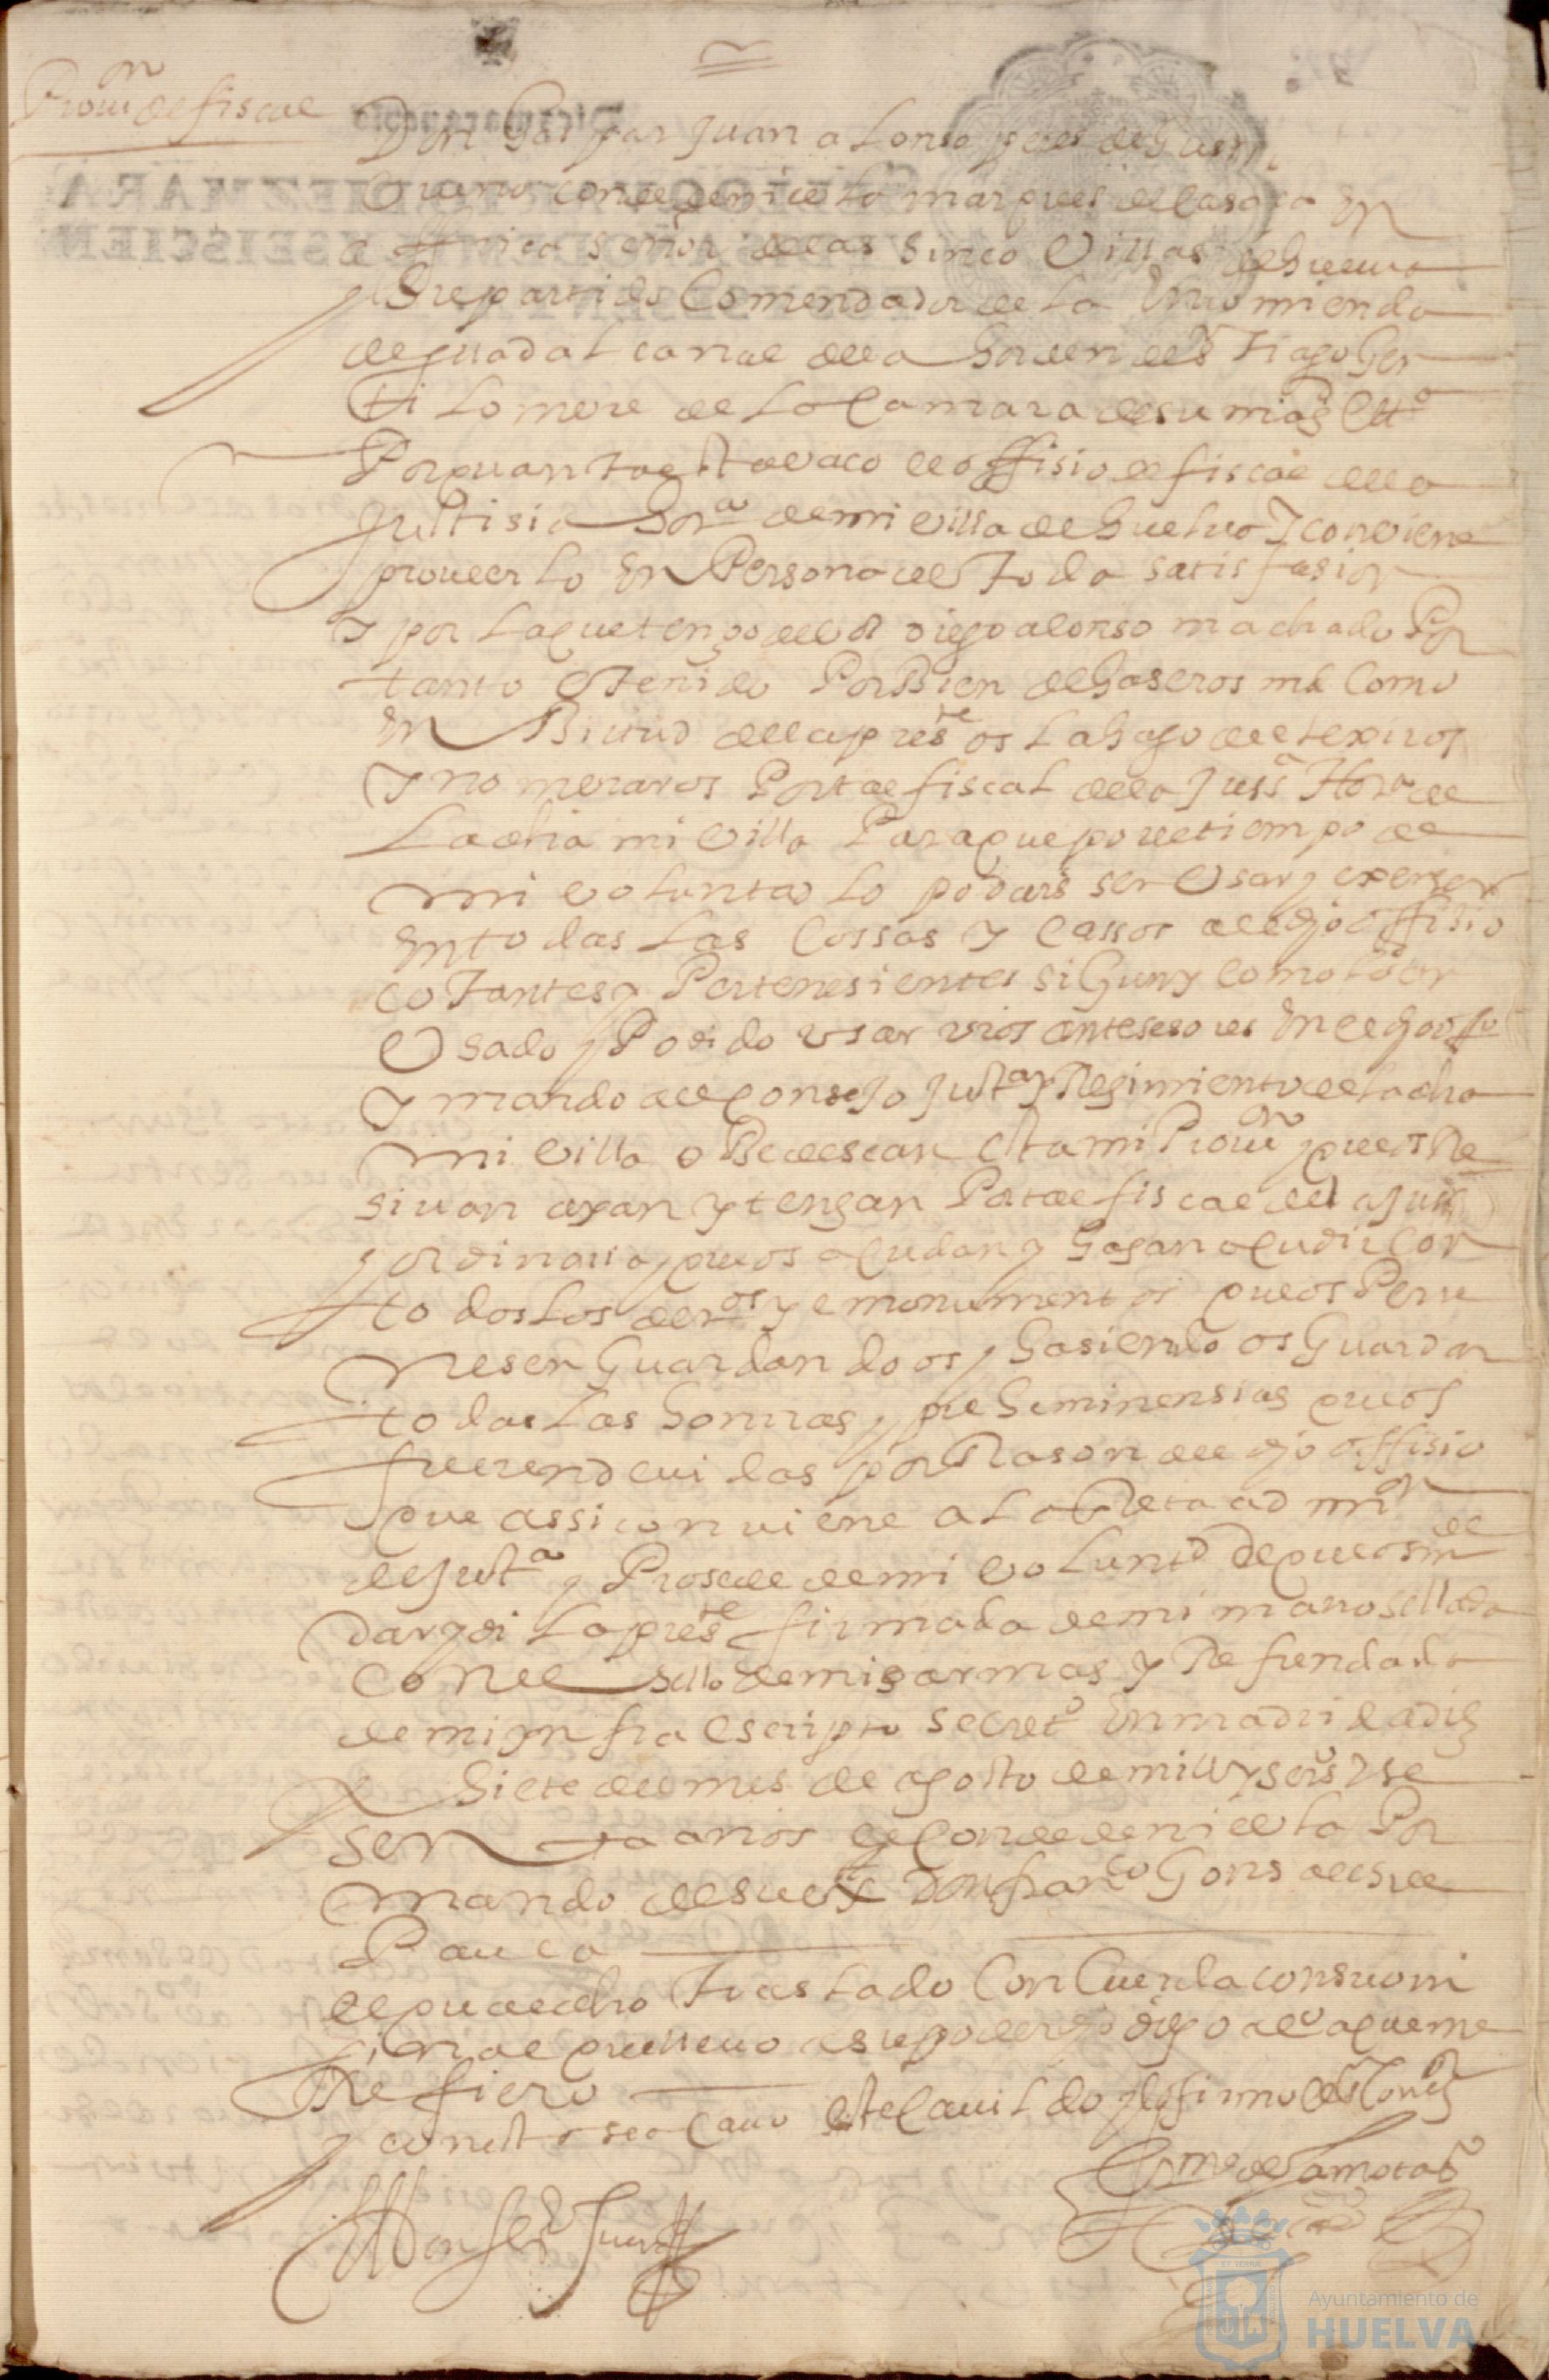 Prouin de fiscal
Don Gaspar Juan alonso peres de Gusman
Bueno conde de niebla marques de Casasa en
a frica señor de las sinco Villas de Huelua
y Su partido Comendador de la En miendo
de guadalcanal de la horden de S Tiago Gen
til Hombre de la Camara de su magd Ettª
Por quanto esta vaco el offisio de fiscal de la
Justisia horª de mi villa de Huelua Y conviene
proueerlo en Persona de toda satisfasion
y por la que tengo de vos diego alonso machado Por
tanto E Tenido Por Bien de haseros md Como
en Birtud de la preste os la hago de elexiros
Y nomeraros Por tal fiscal de la Jussª Horª de
La dha mi Villa Para que por el tiempo de
mi voluntad lo podais ser Usar y exerser
en todas las Cossas y Cassos al dho offisio
to Tantes y Pertenesientes sigun y como lo an
Usado y Podido usar vros antesesores en el dho offo
Y mando al Consejo Justª y Regimiento de la dha
mi villa o Bedescan esta mi Prouin y que os Re
siuan ayan y tengan Por tal fiscal de la Jussª
y ordinaria y que os acudan y hagan acudir Con
to dos los deros y emonumentos que os Perte
nesen Guardandoos y hasiendo os Guardar
todas las honrras y preheminensias que os
fueren deuidas por Rason del dho offisio
que assi conuiene a la Reta admin
de Justª y Prosede de mi voluntd de que os mde
dar y di la preste firmada de mi mano sellada
con el sello de mis armas y Refrendada
de mi infraescripto secreto En madrid a dies
y Siete del mes de agosto de mill y seisos y se
senta años El Conde de niebla Por
mando de su exª Don franco Gons de
Pauca
el qual dho Traslado Concuerda con su ori
jinal que lleuo a su poder el dho diego alo a que me
Refiero
y con esto se acauo este Cauildo y lo firmo